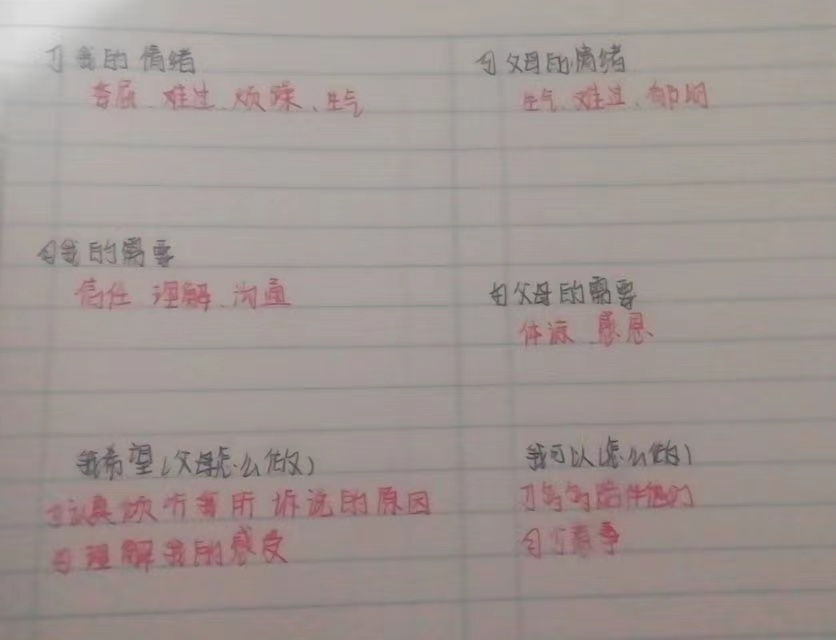 1)我的情绪
委屈、难过、烦躁、生气
2)父母的情绪
生气、难过、郁闷
2)我的需要
信任 理解、沟通
2)父母的需要
体谅、感恩
我希望(父母怎么做)
1)认真倾听我所诉说的原因
2)理解我的感受
我可以(怎么做)
1)多多陪伴他们
2)